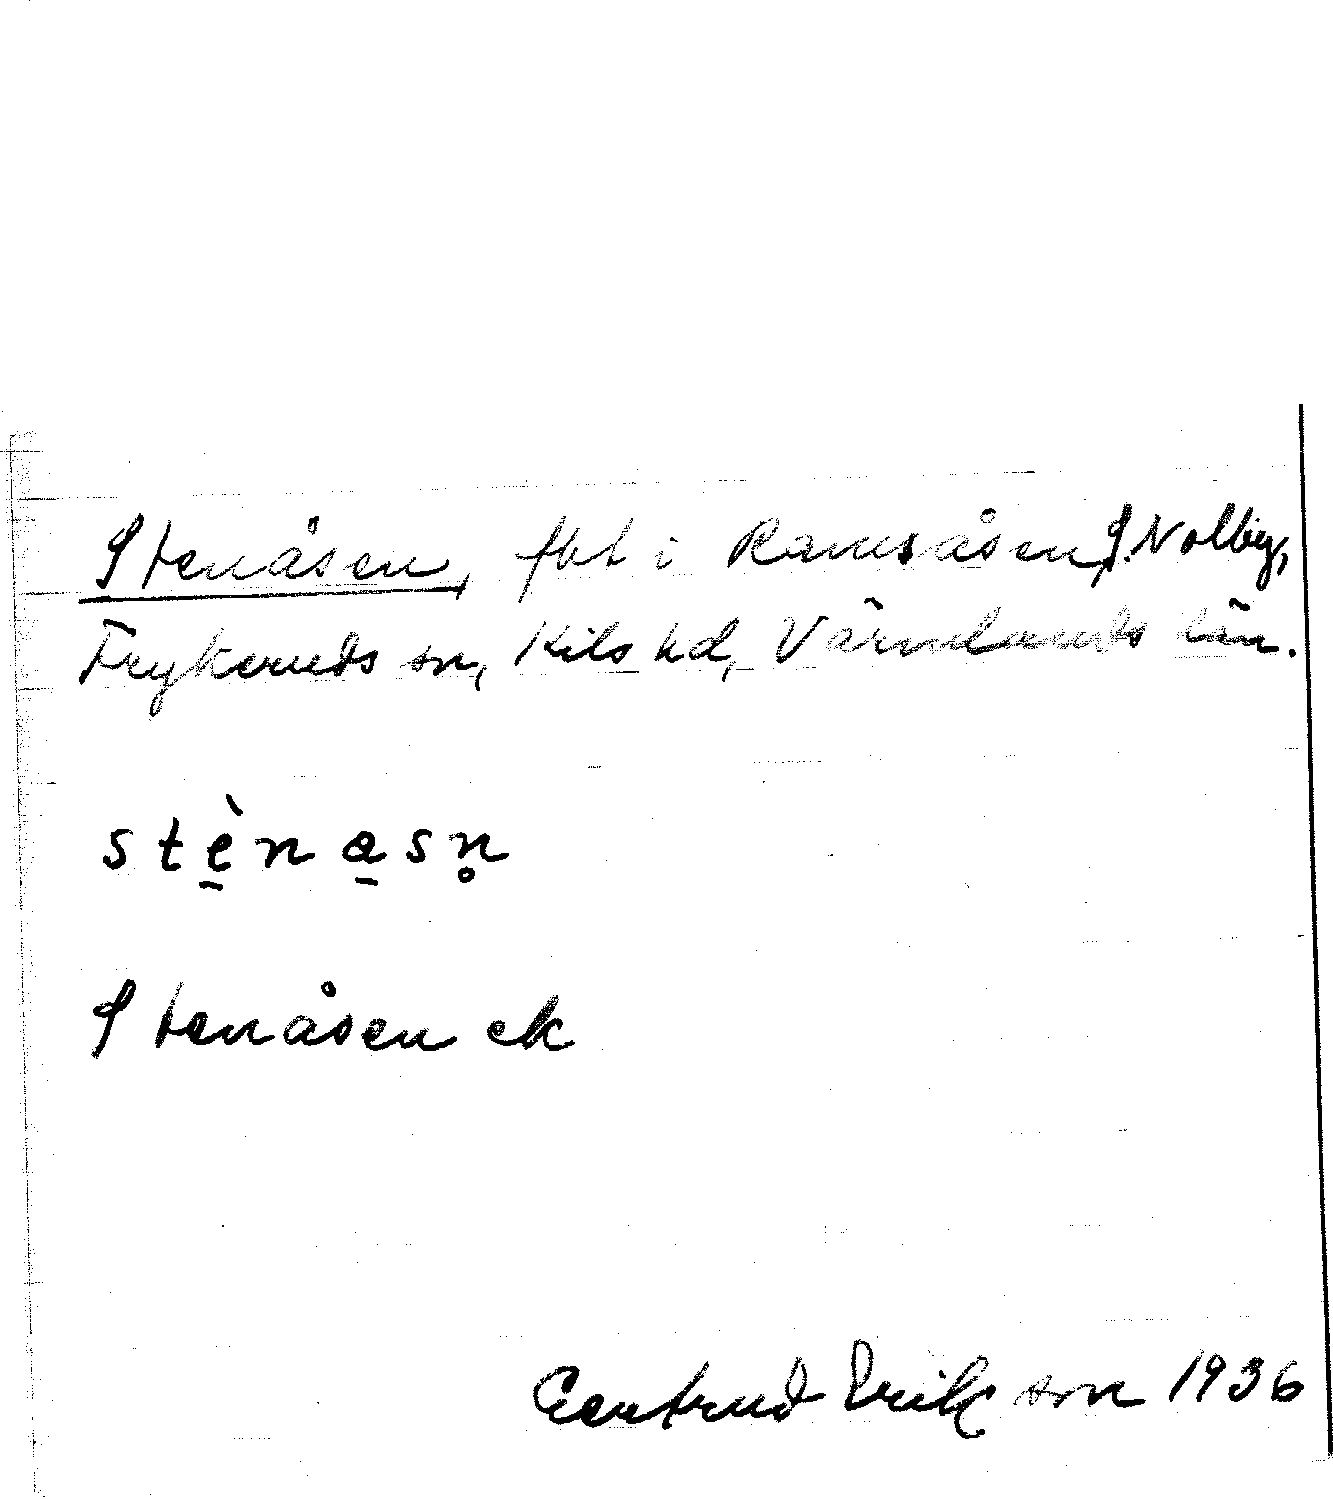 Stenåsen, fbt i Ramsåsen, S. Nolby,
Frykeruds sn, Kils hd, Värmlands län.
stè̱na̱sn̥
Stenåsen ek
Gertrud Erikson 1936